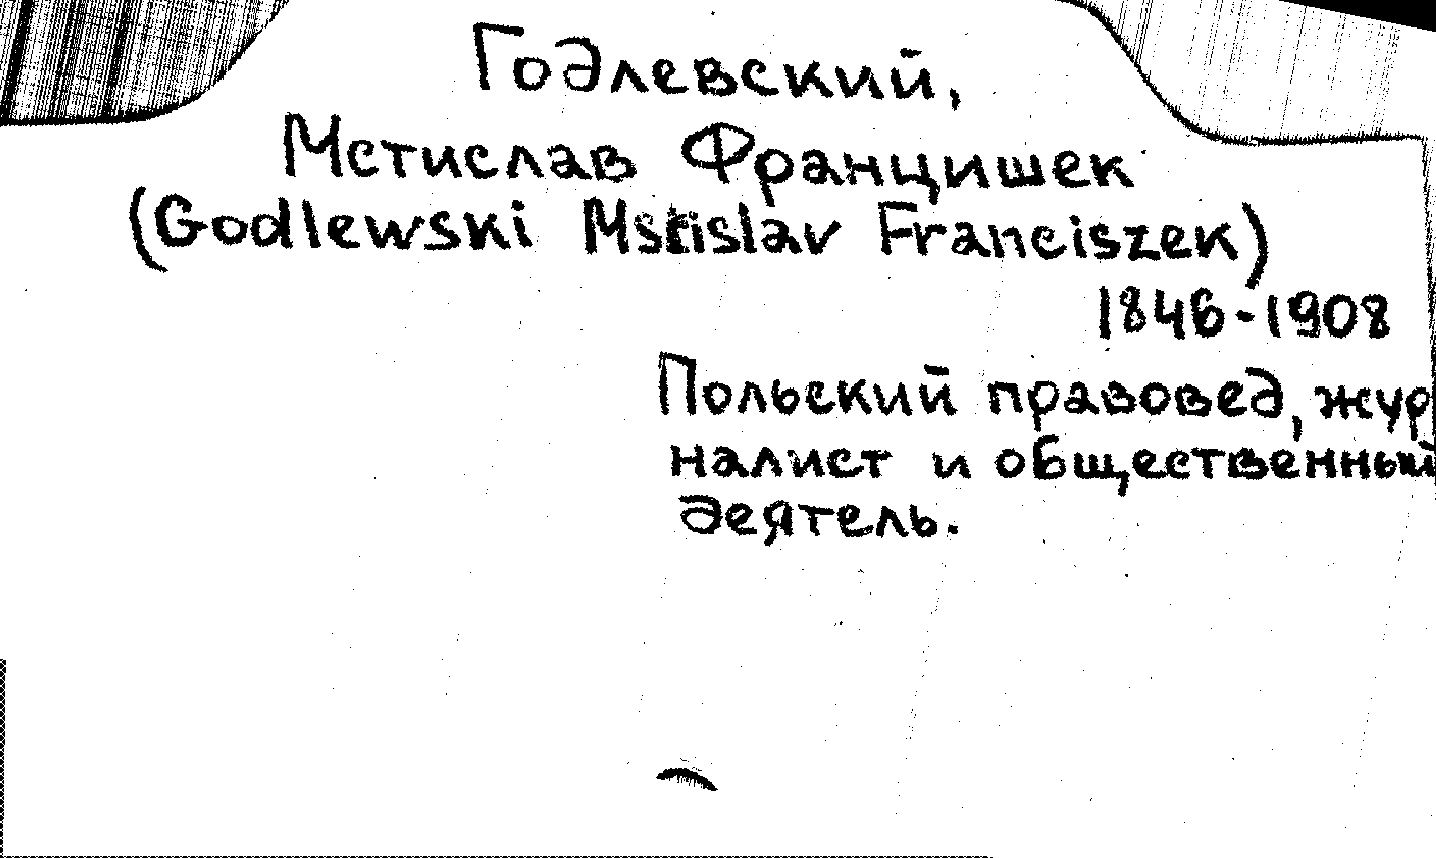 Годлевский,
Мстислав Францишек
(Godlewski Mstislav Franciszek)
1846-1908
Польский правовед, жур
налист и общественный
деятель.